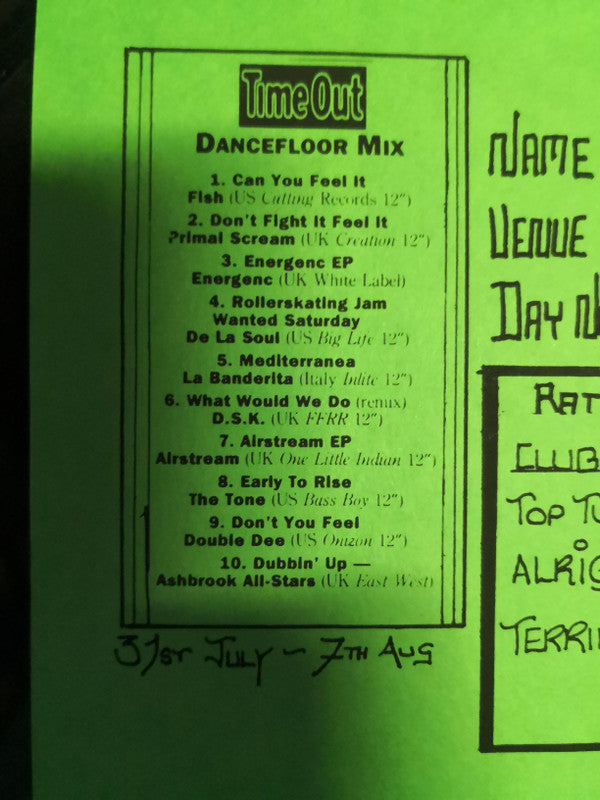 Time Out
DANCEFLOOR MIX
1. Can You Feel It
Fish (US Cutting Records 12")
2. Don't Fight It Feel It
Primal Scream (UK Creation 12")
3. Energenc EP
Energenc (UK White Label)
4. Rollerskating Jam
Wanted Saturday
De La Soul (US Big Life 12")
5. Mediterranea
La Banderita (Italy Inlite 12")
6. What Would We Do (remix)
D.S.K. (UK FFRR 12")
7. Airstream EP
Airstream (UK One Little Indian 12")
8. Early To Rise
The Tone (US Bass Boy 12")
9. Don't You Feel
Double Dee (US Onizon 12")
10. Dubbin' Up —
Ashbrook All-Stars (UK East West)
31ST JULY - 7TH AUG
NAME
VENUE
DAY N
RAT
CLUB
TOP TU
ALRIG
TERRI